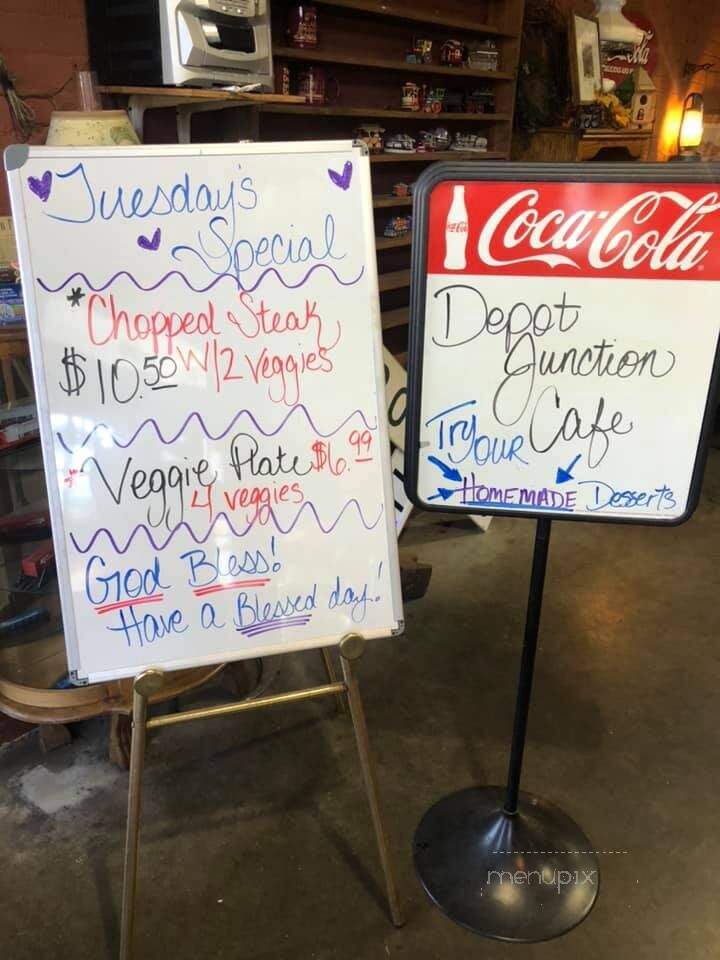 Tuesday's
Special
*Chopped Steak
$10.50 W/2 Veggies
*Veggie Plate $6.99
4 veggies
God Bless!
Have a Blessed day!
Coca-Cola
Depot
Junction
Cafe
Try our
HOMEMADE Desserts
menupix